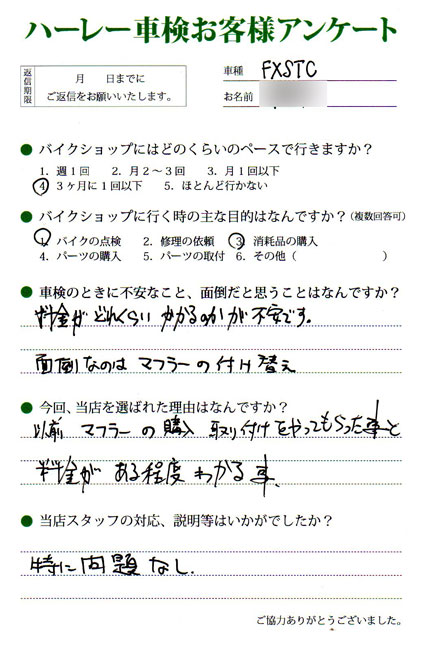 ハーレー車検お客様アンケート
返信期限
月　日までに
ご返信をお願いいたします。
車種 FXSTC
お名前
● バイクショップにはどのくらいのペースで行きますか？
1. 週1回　2. 月2～3回　3. 月1回以下
4. 3ヶ月に1回以下　5. ほとんど行かない
● バイクショップに行く時の主な目的はなんですか？(複数回答可)
1. バイクの点検　2. 修理の依頼　3. 消耗品の購入
4. パーツの購入　5. パーツの取付　6. その他（　　　　）
● 車検のときに不安なこと、面倒だと思うことはなんですか？
料金がどれくらいかかるのかが不安です。
面倒なのはマフラーの付け替え
● 今回、当店を選ばれた理由はなんですか？
以前 マフラーの購入 取り付けをやってもらった事と
料金がある程度わかる事。
● 当店スタッフの対応、説明等はいかがでしたか？
特に問題なし。
ご協力ありがとうございました。